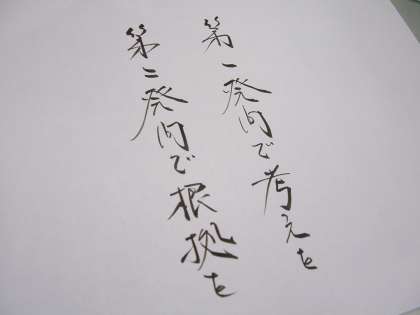 第一発問で考えを
第二発問で根拠を